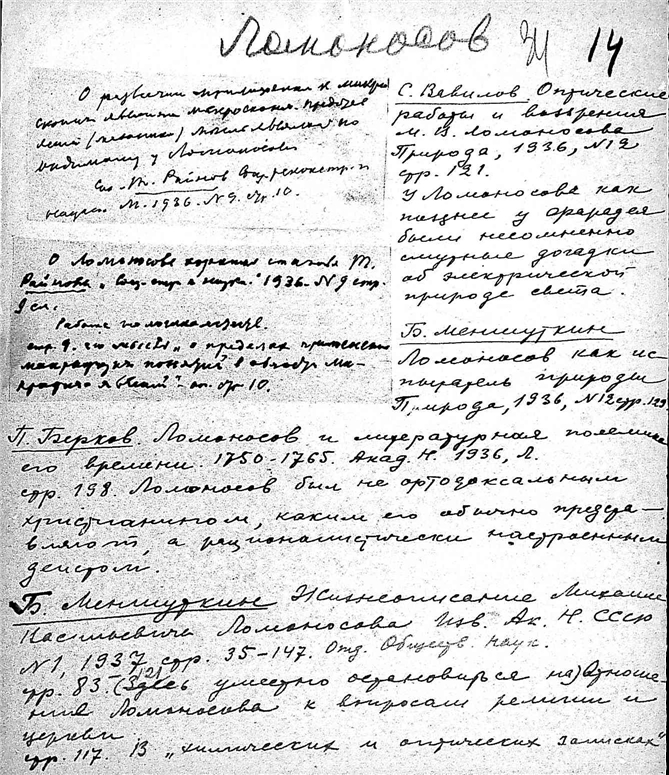 Ломоносов 14
О развитии применения к микро
скопич явлениям макроскопич. представ
лений (механики) мысль явилась по
видимому у Ломоносова
См. Т. Райнов Соц. реконстр. и
наука М. 1936. N 9. стр. 10.
О Ломоносове хорошая статья Т.
Райнова „Соц. стр. и наука." 1936. N 9 стр.
9 сл.
стр. 9. его мысль „о пределах применения
макрофизич понятий в области ми-
крофизич явлений" сл. стр. 10.
С. Вавилов. Оптические
работы и воззрения
М. В. Ломоносова
Природа, 1936, N 12
стр. 121.
У Ломоносова как
позднее у Фарадея
были несомненно
смутные догадки
об электрической
природе света.
Б. Меншуткин
Ломоносов как ис
пытатель природы
Природа, 1936, N 12 стр. 129
П. Берков. Ломоносов и литературная полемика
его времени. 1750-1765. Акад. Н. 1936, Л.
стр. 198. Ломоносов был не ортодоксальным
христианином, каким его обычно предста-
вляют, а рационалистически настроенным
деистом.
Б. Меншуткин Жизнеописание Михаила
Васильевича Ломоносова Изв. Ак. Н. СССР
N 1, 1937 стр. 35-147. Отд. Обществ. наук.
стр. 83. (121) (Здесь уместно остановиться на) Отноше-
ния Ломоносова к вопросам религии и
церкви
стр. 117. В „химических и оптических записках"